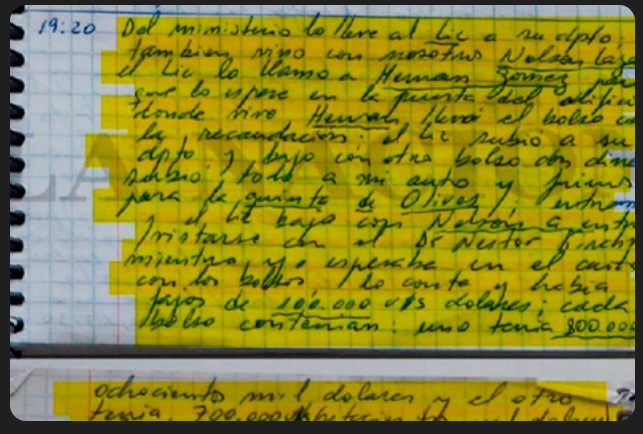 19:20 Del miministerio lo lleve al Lic a su dpto,
tambien vino con nosotros Nelson Laza
el Lic lo llamo a Hernan Gomez para
que lo espere en la puerta del edifici
donde vive Hernan llevó el bolso c
la recaudación; el Lic subió a su
dpto y bajo con otro bolso con dine
subio todo a mi auto y fuimos
para la quinta de Olivos; entra
y el Lic bajo con Nelson a entre
/nistarse con el Dr Nestor Kirchn
mientras yo esperaba en el auto
con los bolsos, lo conte y habia
fajos de 100.000 U$S dolares; cada
bolso contenian: uno tenia 800.000
ochocientos mil dolares y el otro
tenia 700.000
LA NACION